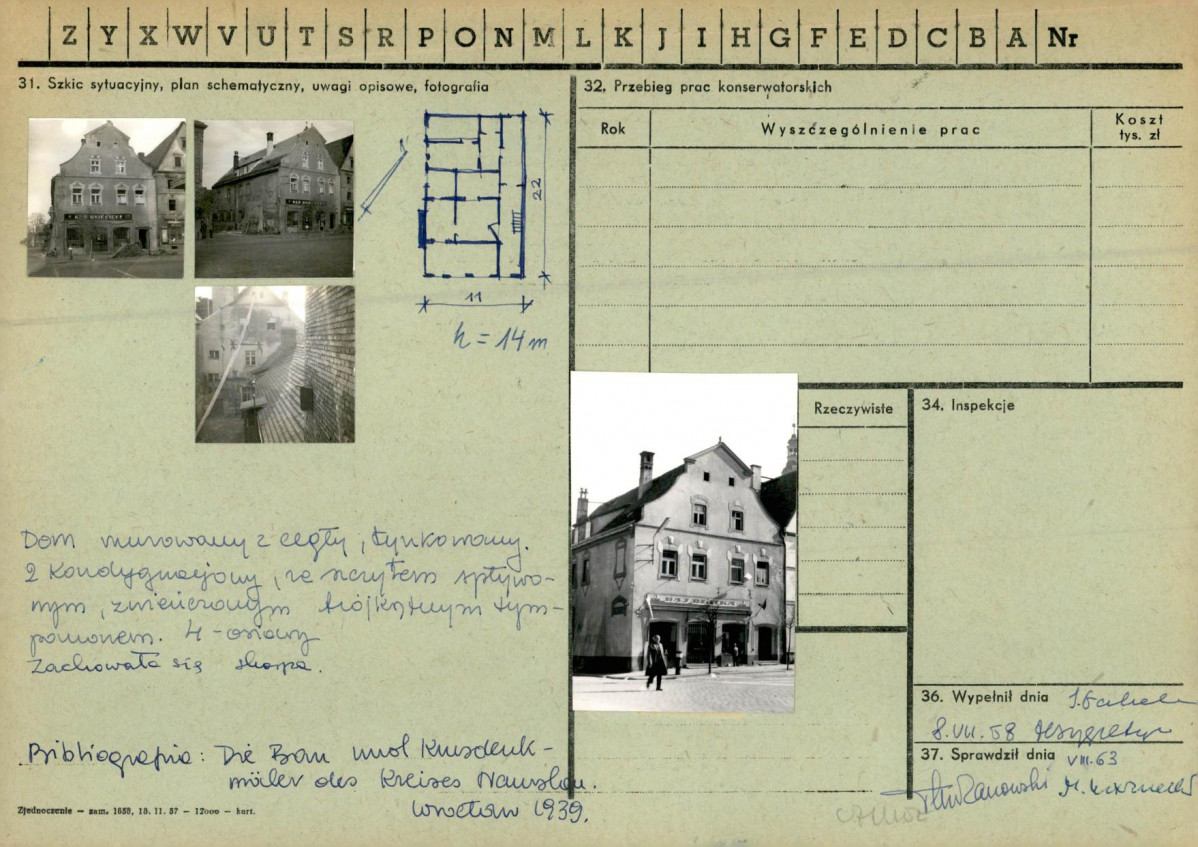 Z Y X W V U T S R P O N M L K J I H G F E D C B A Nr
31. Szkic sytuacyjny, plan schematyczny, uwagi opisowe, fotografia
22
11
h = 14 m
Dom murowany z cegły, tynkowany.
2 kondygnacjowy, ze szczytem spływo-
nym, zwieńczonym trójkątnym tym-
panonem. 4-osiowy
Zachowała się skarpa.
Bibliografia: Die Bau und Kunsdenk-
mäler des Kreises Namslau.
Wrocław 1939.
Zjednoczenie — zam. 1658, 18. 11. 57 — 12000 — kart.
32. Przebieg prac konserwatorskich
Rok
Wyszczególnienie prac
Koszt
tys. zł
Rzeczywiste
34. Inspekcje
36. Wypełnił dnia
8.VII.58
37. Sprawdził dnia VIII.63